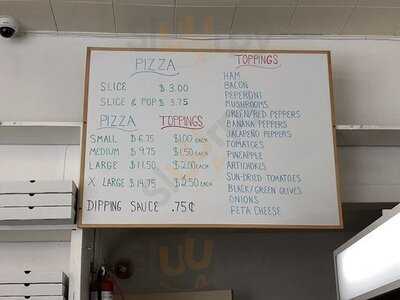 PIZZA
SLICE $3.00
SLICE & POP $3.75
PIZZA TOPPINGS
SMALL $6.75 $1.00 EACH
MEDIUM $9.75 $1.50 EACH
LARGE $11.50 $2.00 EACH
X LARGE $14.75 $2.50 EACH
DIPPING SAUCE .75¢
TOPPINGS
HAM
BACON
PEPERONI
MUSHROOMS
GREEN/RED PEPPERS
BANANA PEPPERS
JALAPEÑO PEPPERS
TOMATOES
PINEAPPLE
ARTICHOKES
SUN-DRIED TOMATOES
BLACK/GREEN OLIVES
ONIONS
FETA CHEESE